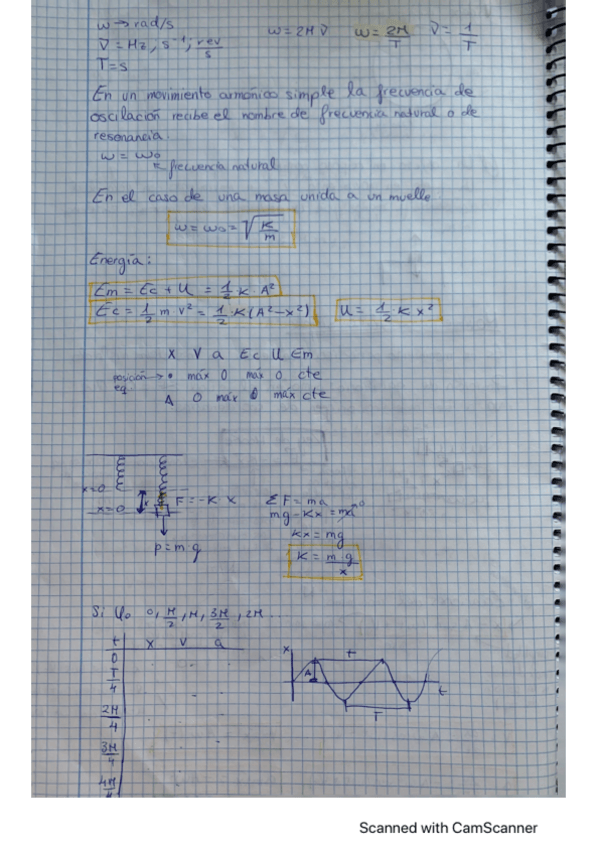 ω → rad/s    ω = 2Π ν̄    ω = 2Π/T    ν̄ = 1/T
ν̄ = Hz, s⁻¹, rev/s
T = s
En un movimiento armónico simple la frecuencia de
oscilación recibe el nombre de frecuencia natural o de
resonancia.
ω = ω₀
frecuencia natural
En el caso de una masa unida a un muelle
ω = ω₀ = √(K/m)
Energía:
Em = Ec + U = 1/2 K A²
Ec = 1/2 m v² = 1/2 · K (A² - x²)    U = 1/2 · K x²
X V a Ec U Em
posición → 0 máx 0 máx 0 cte
eq.
A 0 máx 0 máx cte
x=0
x=0    F = -K x    ΣF = ma
mg - Kx = ma⁰
P = m g    Kx = mg
K = m g/x
Si φ₀ 0, Π/2, Π, 3Π/2, 2Π ...
t x v a
0
T/4
2Π/4
3Π/4
4Π/4
x t
A t
T
Scanned with CamScanner